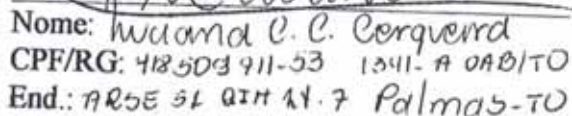 Nome: C. C. Cerqueira
CPF/RG: 418509911-53 1341-A OAB/TO
End.: ARSE 51 QIH 7 Palmas-TO